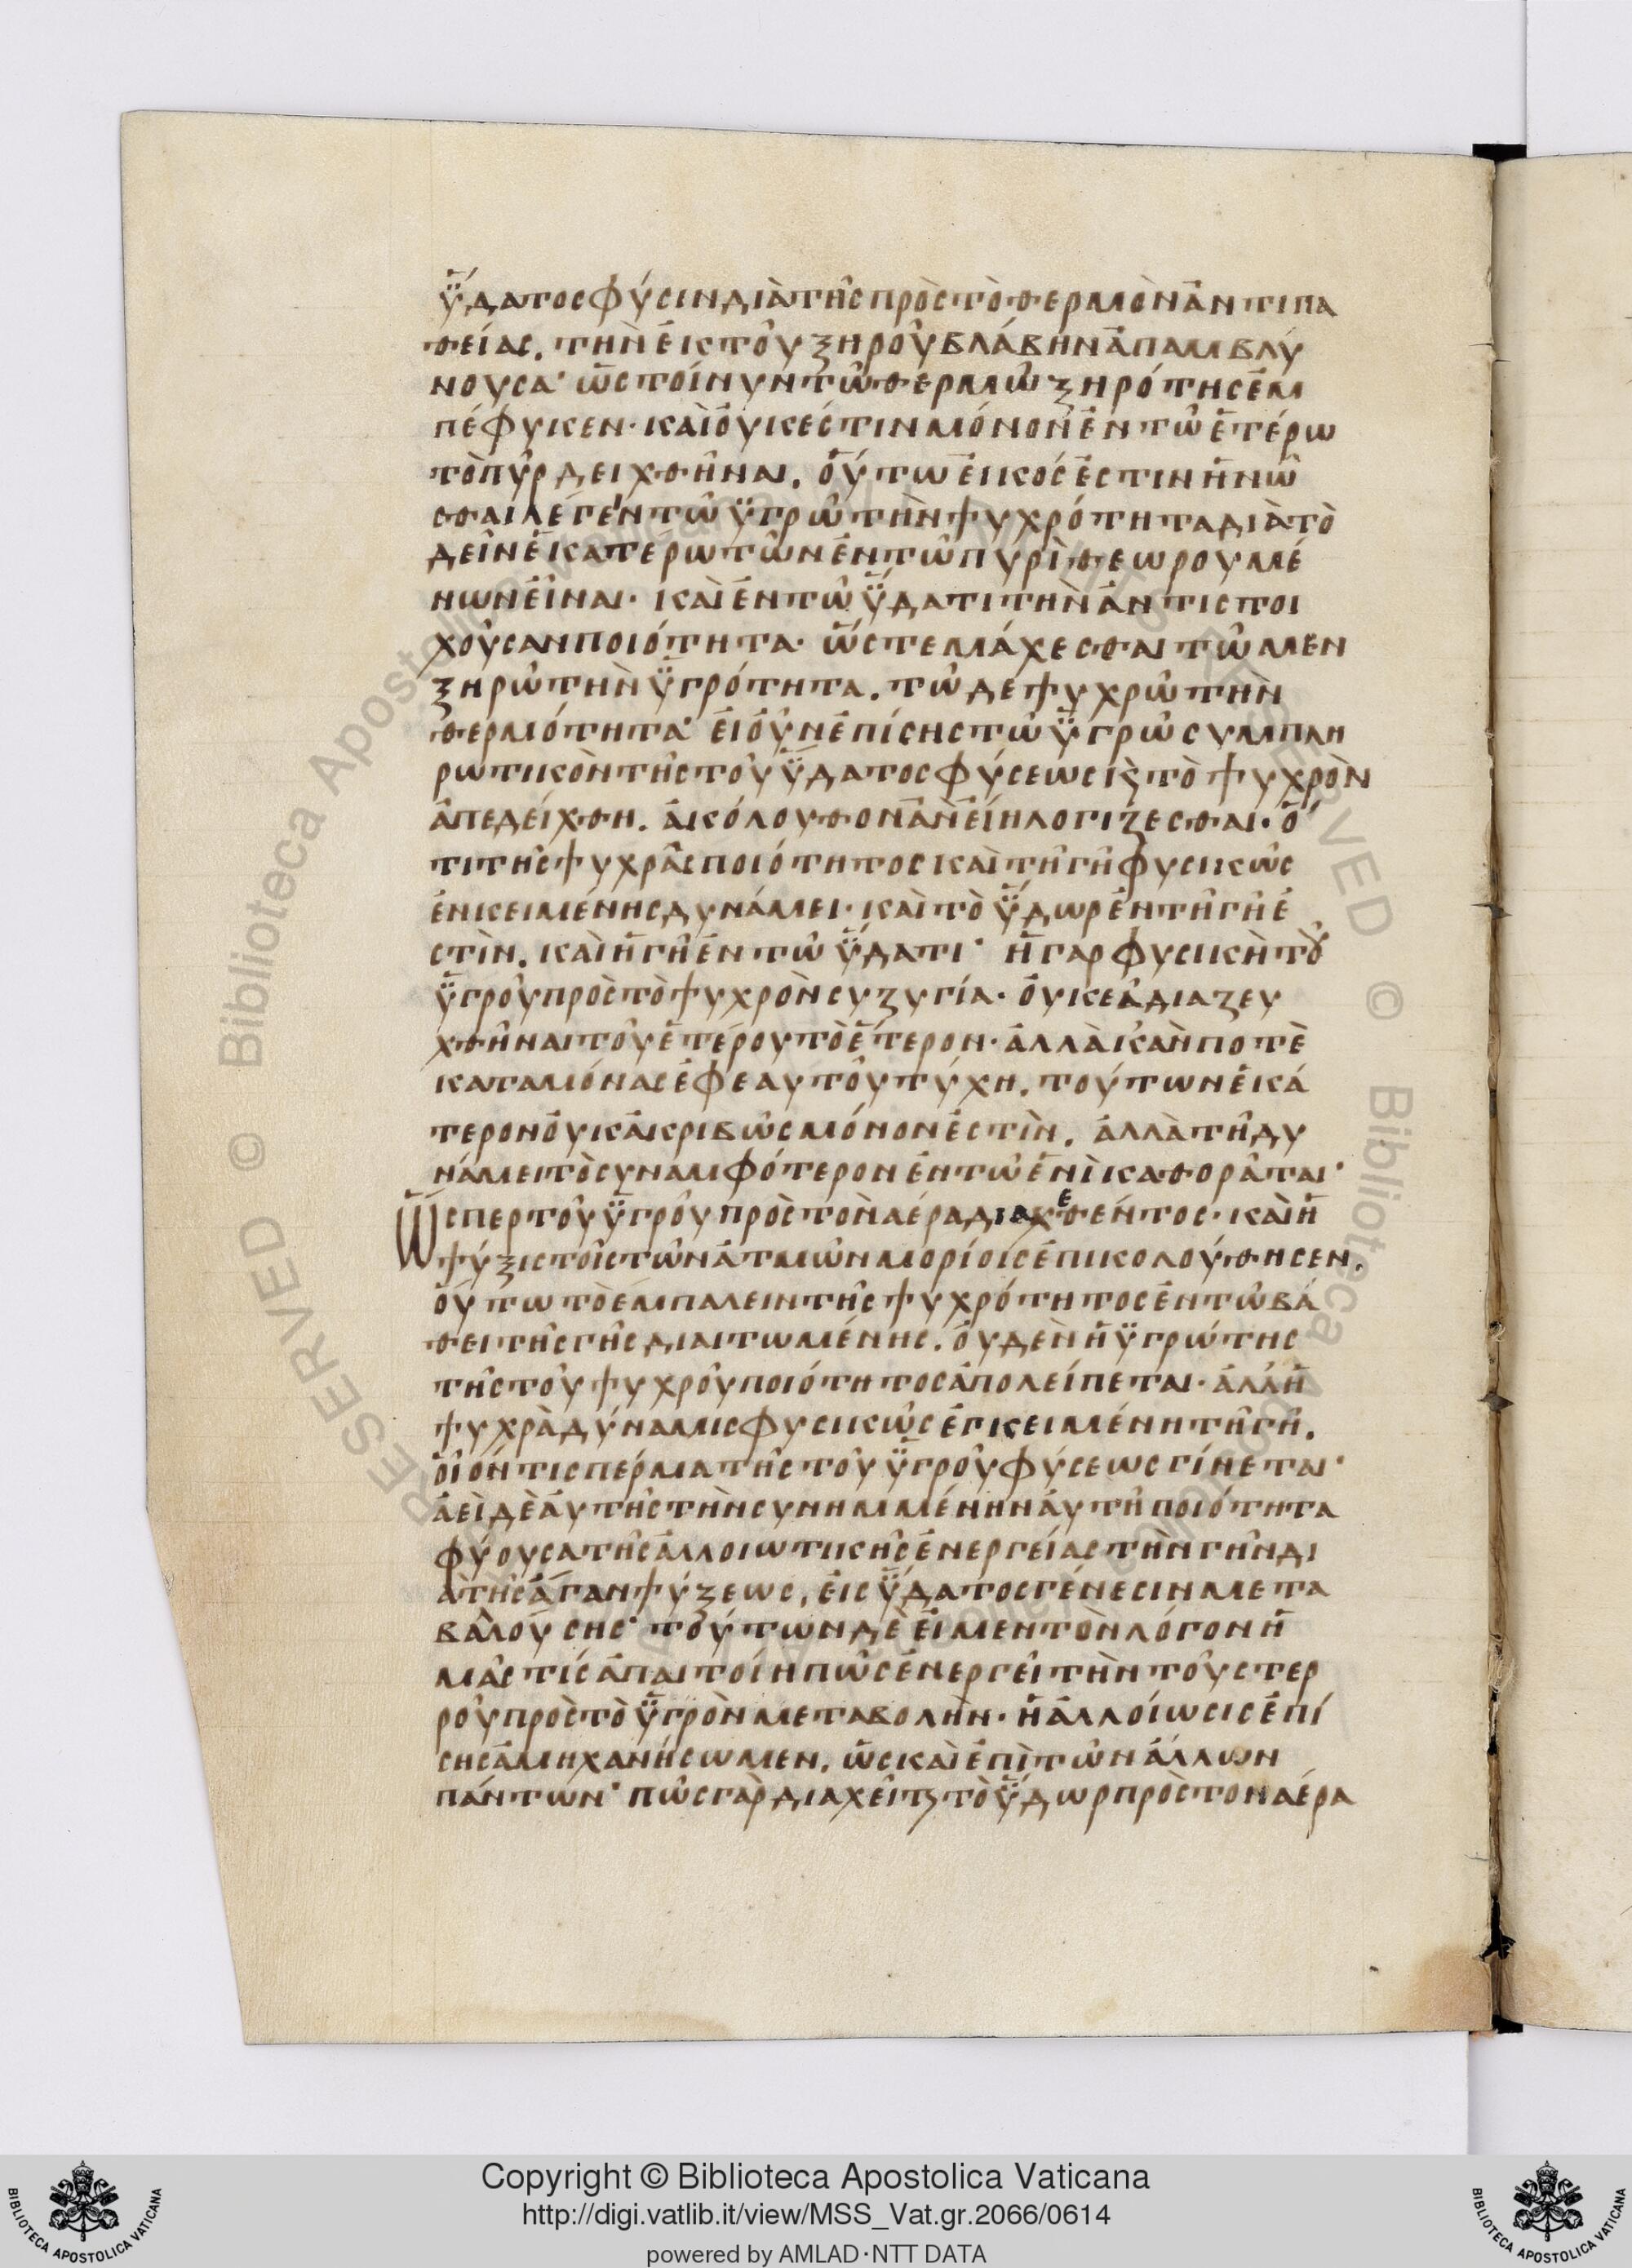 ὕδατος φύσιν διὰ τῆς πρὸς τὸ θερμὸν ἀντιπα
θείας. τὴν ἐκ τοῦ ξηροῦ βλάβην ἀπαμβλύ
νουσα· ὡς τοίνυν τῷ θερμῷ ξηρότης ἐμ
πέφυκεν· καὶ οὐκ ἔστιν μόνον ἐν τῷ ἑτέρω
τὸ πῦρ δειχθῆναι. οὕτω εἰκός ἐστιν ἡνῶ
σθαι λέγειν τῷ ὑγρῷ τὴν ψυχρότητα διὰ τὸ
δεῖν ἑκατέρω τῶν ἐν τῷ πυρὶ θεωρουμέ
νων εἶναι· καὶ ἐν τῷ ὕδατι τὴν ἀντιστοι
χοῦσαν ποιότητα· ὥστε μάχεσθαι τῷ μεν
ξηρῷ τὴν ὑγρότητα. τῷ δέ ψυχρῷ τὴν
θερμότητα· εἰ οὖν ἐπίσης τῷ ὑγρῷ συμπλη
ρωτικὸν τῆς τοῦ ὕδατος φύσεως κ̀ τὸ ψυχρὸν
ἀπεδείχθη. ἀκόλουθον ἂν εἴη λογίζεσθαι· ὅ
τι τῆς ψυχρᾶς ποιότητος καὶ τῇ γῇ φυσικῶς
ἐνκειμένης δυνάμει· καὶ τὸ ὕδωρ ἐν τῇ γῇ ἐ
στὶν. καὶ ἡ γῆ ἐν τῷ ὕδατι· ἡ γαρ φυσικὴ τοῦ
ὑγροῦ πρὸς τὸ ψυχρὸν συζυγία· οὐκ εᾷ διαζευ
χθῆναι τοῦ ἑτέρου τὸ ἕτερον· ἀλλὰ κἂν ποτὲ
καταμόνας ἐφ εαυτοῦ τύχη. τούτων ἑκά
τερον οὐκ ἀκριβῶς μόνον ἐστὶν. ἀλλὰ τῇ δυ
νάμει τὸ συναμφότερον ἐν τῷ ἑνὶ καθορᾶται·
Ὥσπερ τοῦ ὑγροῦ πρὸς τὸν αέρα διαχεθέντος· καὶ ἡ
ψύξις τοῖς τῶν ἀτμῶν μορίοις ἐπικολούθησεν.
οὕτω τὸ έμπαλειν τῆς ψυχρότητος ἐν τῷ βά
θει τῆς γῆς διαιτωμένης. οὐδὲν ἡ ὑγρώτης
τῆς τοῦ ψυχροῦ ποιότητος ἀπολείπεται· ἀλλ ἡ
ψυχρὰ δύναμις φυσικῶς ἐγκειμένη τῇ γῇ.
οἷόν τι σπέρμα τῆς τοῦ ὑγροῦ φύσεως γίνεται·
ἀεὶ δὲ ἀυτῆς τὴν συνημμένην ἀυτῇ ποιότητα
φύουσα τῆς ἀλλοιωτικῆς ἐνεργείας τὴν γῆν δι
ὰ τῆς ἄγαν ψύξεως, εἰς ὕδατος γένεσιν μετα
βαλούσης· τούτων δὲ εἰ μεν τὸν λόγον ἡ
μᾶς τίς ἀπαιτοίη πῶς ἐνεργεῖ τὴν τοῦ στερ
ροῦ πρὸς τὸ ὑγρὸν μεταβολὴν· ἡ ἀλλοίωσις ἐπί
σης ἀμηχανήσωμεν. ὡς καὶ ἐπὶ τῶν ἄλλων
πάντων· πῶς γὰρ διαχεῖται τὸ ὕδωρ πρὸς τον αέρα
Copyright © Biblioteca Apostolica Vaticana
http://digi.vatlib.it/view/MSS_Vat.gr.2066/0614
powered by AMLAD·NTT DATA